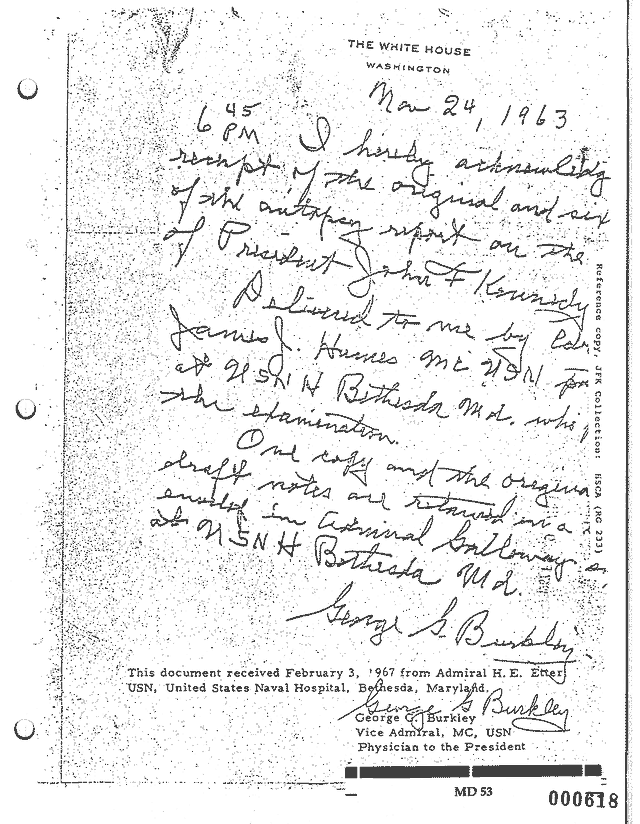 THE WHITE HOUSE
WASHINGTON
Nov 24, 1963
6 45
PM
I hereby acknowledg
receipt of the original and six
of the autopsy report on the
of President John F Kennedy
Delivered to me by
James J. Humes MC USN
at USNH Bethesda Md. who
the examination.
One copy and the origina
draft notes are retained in a
in Admiral Galloway s
at USNH Bethesda Md.
George G. Burkley
This document received February 3, 1967 from Admiral H. E. Etter,
USN, United States Naval Hospital, Bethesda, Maryland.
George G Burkley
George G. Burkley
Vice Admiral, MC, USN
Physician to the President
Reference copy, JFK Collection: HSCA (RG 233)
MD 53
000618